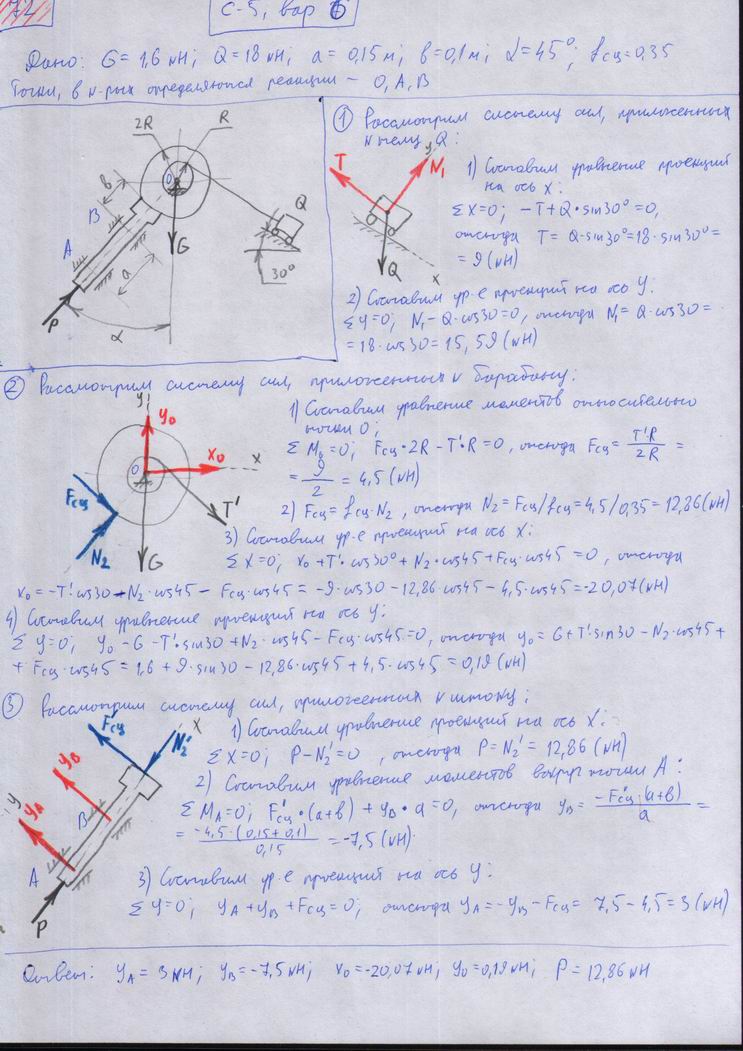 72
С-5, вар 6
Дано: G = 1,6 кН; Q = 18 кН; a = 0,15 м; в = 0,1 м; α = 45°; fсц = 0,35
Точки, в к-рых определяются реакции – O, A, B
2R
R
O
в
B
A
a
G
Q
30°
P
α
① Рассмотрим систему сил, приложенных
к телу Q:
T
y
N₁
Q
x
1) Составим уравнение проекций
на ось X:
ΣX=0; -T+Q·sin30°=0,
отсюда T = Q·sin30°=18·sin30°=
= 9 (кН)
2) Составим ур-е проекций на ось Y:
ΣY=0; N₁-Q·cos30=0, отсюда N₁= Q·cos30=
=18·cos30=15,59(кН)
② Рассмотрим систему сил, приложенных к барабану:
y
Y₀
O
X₀
x
Fсц
N₂
T'
G
1) Составим уравнение моментов относительно
точки O;
ΣM₀=0; Fсц·2R-T'·R=0, отсюда Fсц= T'·R/2R =
= 9/2 = 4,5 (кН)
2) Fсц = fсц·N₂, отсюда N₂=Fсц/fсц=4,5/0,35=12,86(кН)
3) Составим ур-е проекций на ось X:
ΣX=0; X₀+T'·cos30°+N₂·cos45+Fсц·cos45=0, отсюда
X₀=-T'·cos30-N₂·cos45- Fсц·cos45= -9·cos30-12,86·cos45-4,5·cos45=-20,07(кН)
4) Составим уравнение проекций на ось Y:
ΣY=0; Y₀-G-T'·sin30+N₂·cos45-Fсц·cos45=0, отсюда Y₀=G+T'·sin30-N₂·cos45+
+ Fсц·cos45=1,6+9·sin30-12,86·cos45+4,5·cos45=0,19(кН)
③ Рассмотрим систему сил, приложенных к штоку;
F'сц
X
N₂'
Y_B
y
Y_A
B
A
P
1) Составим уравнение проекций на ось X:
ΣX=0; P-N₂'=0, отсюда P=N₂'=12,86(кН)
2) Составим уравнение моментов вокруг точки A:
ΣM_A=0; F'сц·(a+в)+Y_B·a=0, отсюда Y_B= -F'сц·(a+в)/a =
= -4,5·(0,15+0,1)/0,15 =-7,5(кН)
3) Составим ур-е проекций на ось Y:
ΣY=0; Y_A+Y_B+Fсц=0; отсюда Y_A=-Y_B-Fсц= 7,5-4,5=3(кН)
Ответ: Y_A=3кН; Y_B=-7,5кН; X₀=-20,07кН; Y₀=0,19кН; P=12,86кН